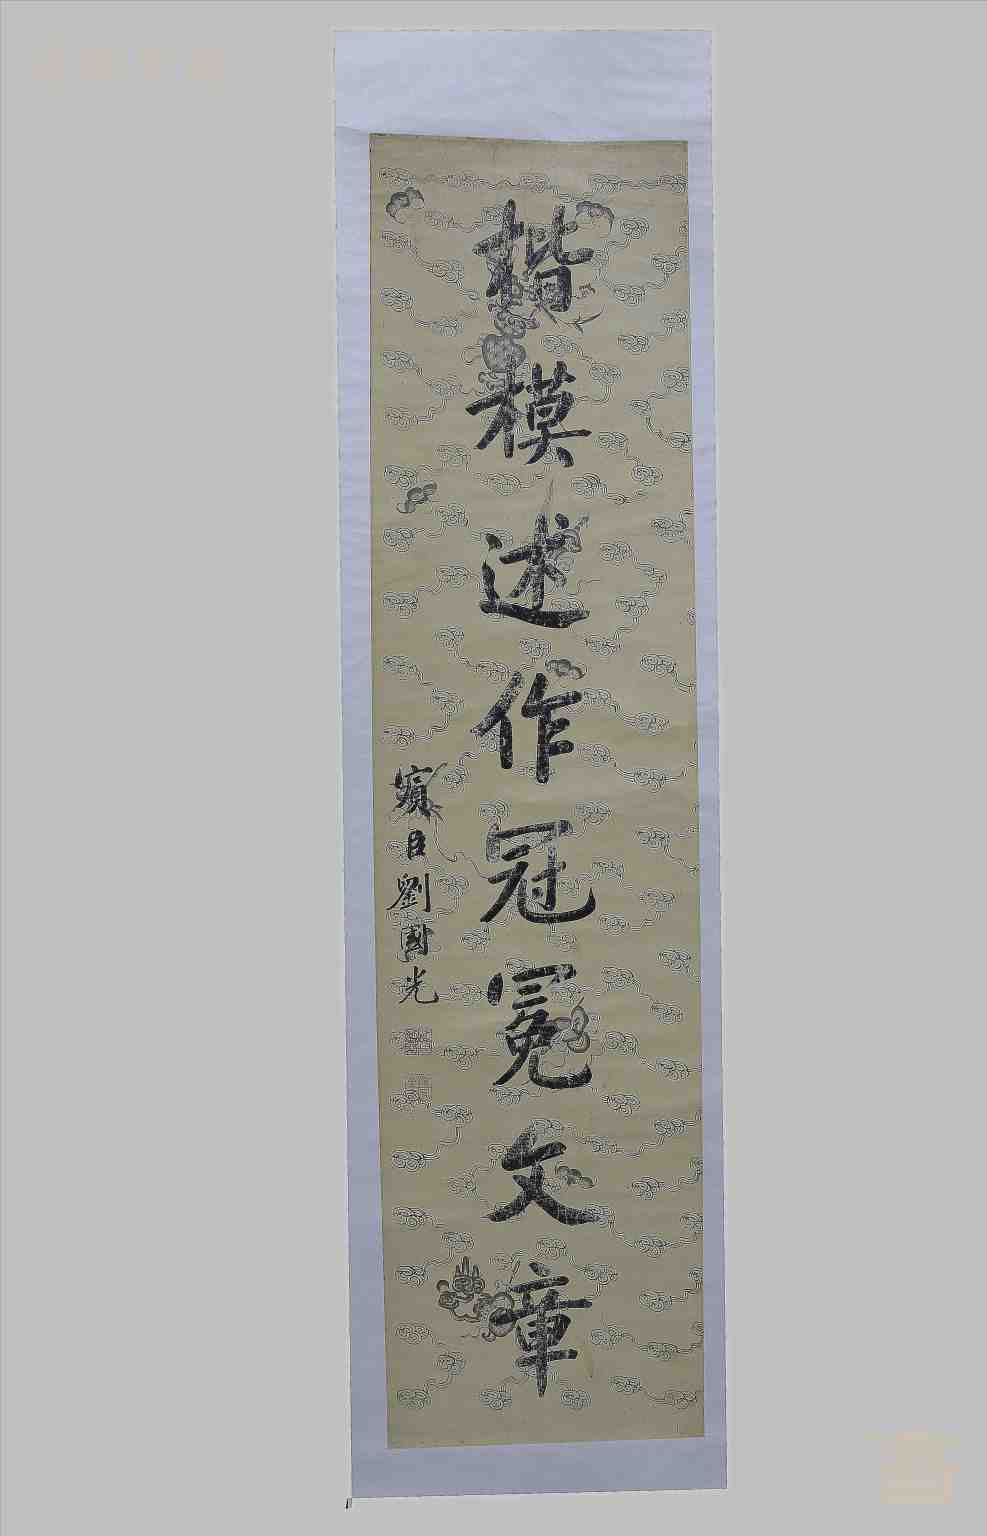 楷模述作冠冕文章
賓臣劉國光